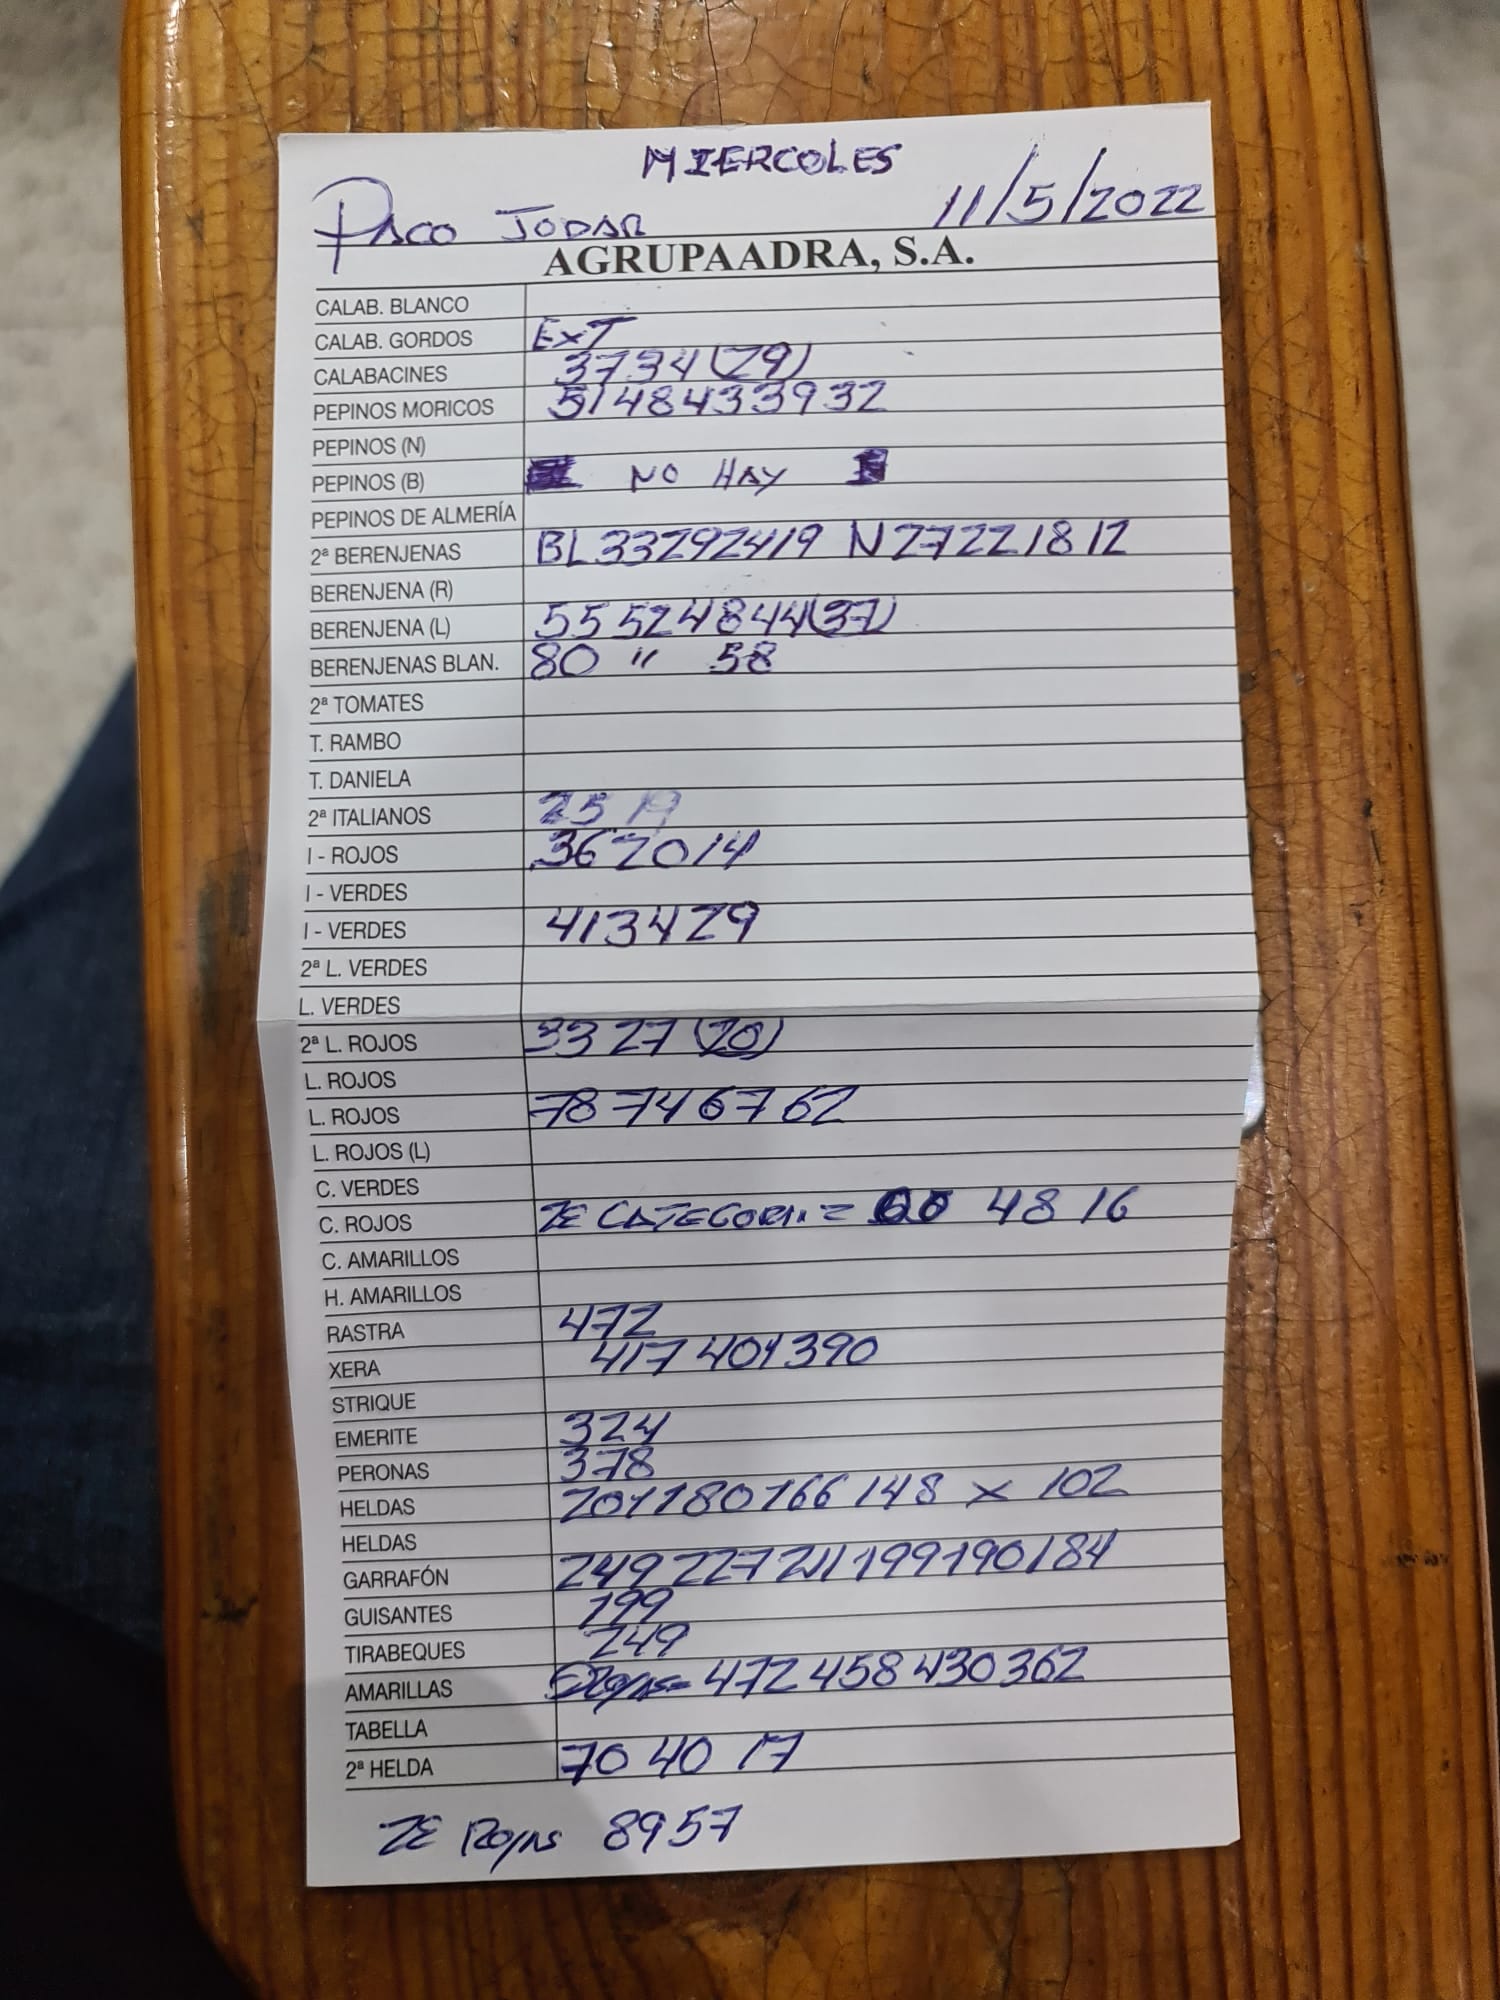 MIERCOLES
PACO JODAR 11/5/2022
AGRUPAADRA, S.A.
CALAB. BLANCO
CALAB. GORDOS EXT
CALABACINES 3734(29)
PEPINOS MORICOS 5148433932
PEPINOS (N)
PEPINOS (B) NO HAY
PEPINOS DE ALMERÍA
2ª BERENJENAS BL 33292419 N 27221812
BERENJENA (R)
BERENJENA (L) 55524844(37)
BERENJENAS BLAN. 80 " 58
2ª TOMATES
T. RAMBO
T. DANIELA
2ª ITALIANOS 25 19
I - ROJOS 362014
I - VERDES
I - VERDES 413429
2ª L. VERDES
L. VERDES
2ª L. ROJOS 3327 (20)
L. ROJOS
L. ROJOS 78746762
L. ROJOS (L)
C. VERDES
C. ROJOS 2E CATEGORI.= 48 16
C. AMARILLOS
H. AMARILLOS
RASTRA 472
XERA 417 401 390
STRIQUE
EMERITE 324
PERONAS 378
HELDAS 201 180 166 148 x 102
HELDAS
GARRAFÓN 249 227 211 199 190 184
GUISANTES 199
TIRABEQUES 249
AMARILLAS 472 458 430 362
TABELLA
2ª HELDA 70 40 17
2E Rojas 8957